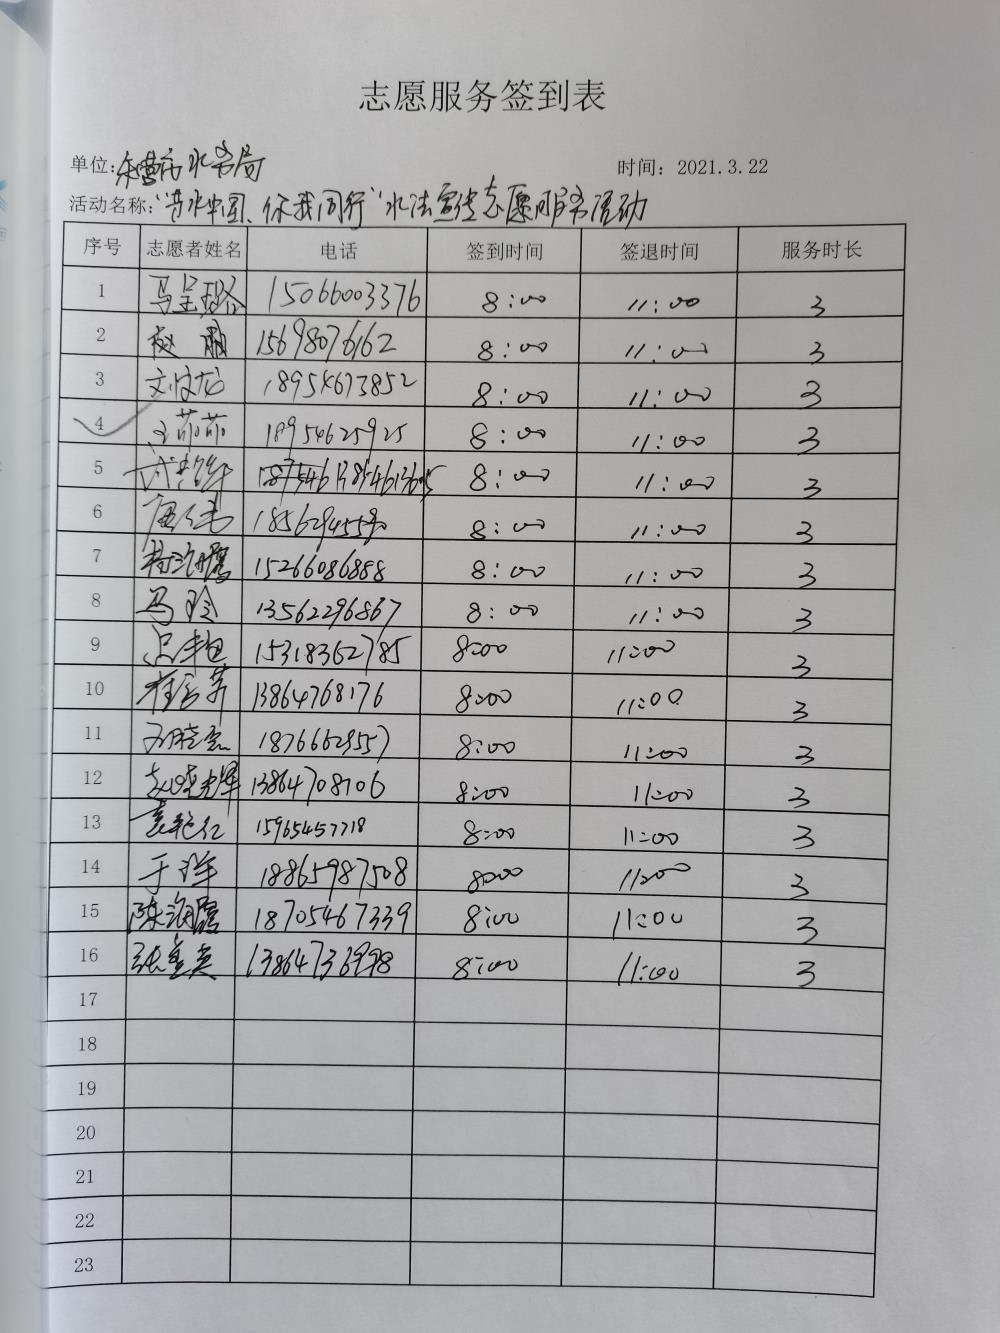 志愿服务签到表
单位:东营市水务局 时间: 2021.3.22
活动名称:“节水中国、你我同行”水法宣传志愿服务活动
序号 志愿者姓名 电话 签到时间 签退时间 服务时长
1 马呈璐 15066003376 8:00 11:00 3
2 赵 15698076162 8:00 11:00 3
3 龙 18954673852 8:00 11:00 3
4 王茹茹 18954625925 8:00 11:00 3
5 8:00 11:00 3
6 8:00 11:00 3
7 韩海鹰 15266086888 8:00 11:00 3
8 马玲 13562296867 8:00 11:00 3
9 15318362785 8:00 11:00 3
10 13864768176 8:00 11:00 3
11 18766629557 8:00 11:00 3
12 赵 13864708706 8:00 11:00 3
13 袁艳红 15965457718 8:00 11:00 3
14 于 18865987508 8:00 11:00 3
15 陈海霞 18705467339 8:00 11:00 3
16 张宝英 13864736998 8:00 11:00 3
17
18
19
20
21
22
23